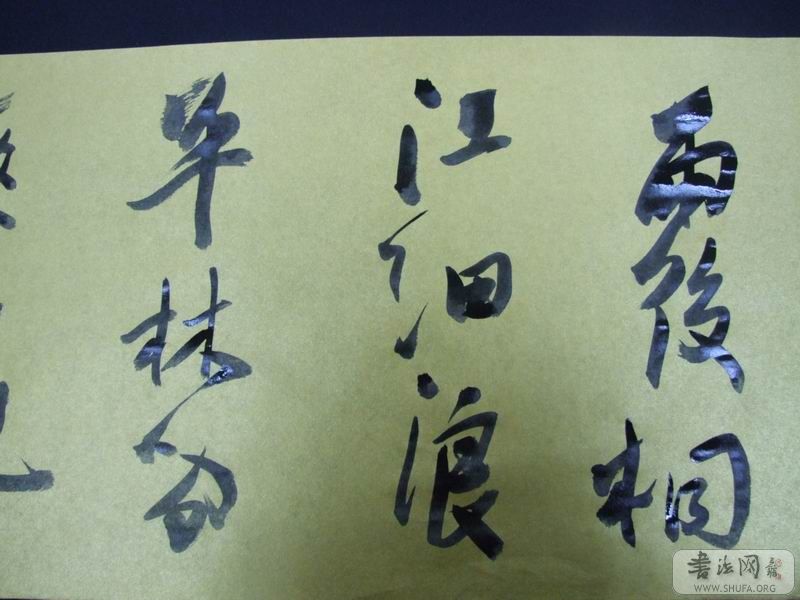 雨後桐
江細浪
平林分
書法网
WWW.SHUFA.ORG